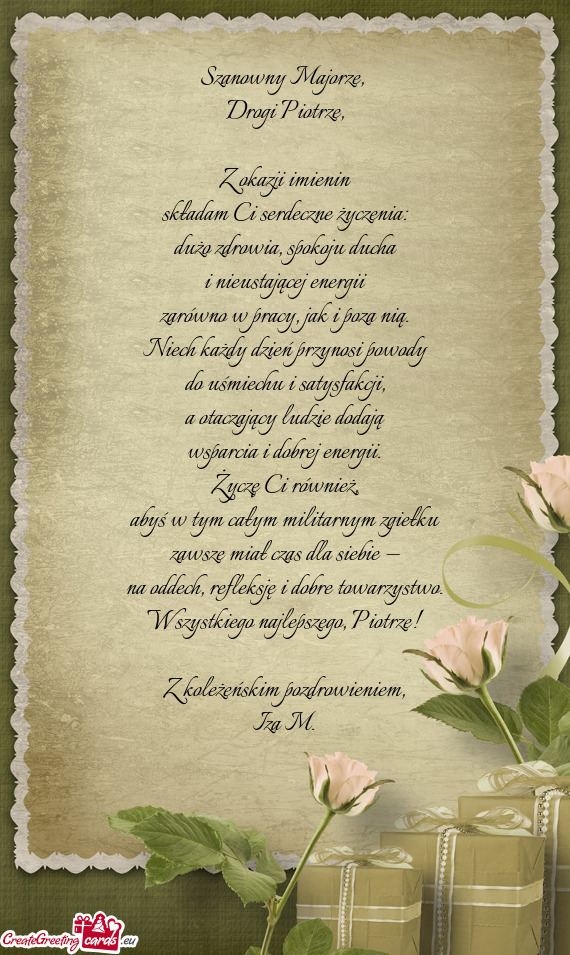 Szanowny Majorze,
Drogi Piotrze,
Z okazji imienin
składam Ci serdeczne życzenia:
dużo zdrowia, spokoju ducha
i nieustającej energii
zarówno w pracy, jak i poza nią.
Niech każdy dzień przynosi powody
do uśmiechu i satysfakcji,
a otaczający ludzie dodają
wsparcia i dobrej energii.
Życzę Ci również,
abyś w tym całym militarnym zgiełku
zawsze miał czas dla siebie –
na oddech, refleksję i dobre towarzystwo.
Wszystkiego najlepszego, Piotrze!
Z koleżeńskim pozdrowieniem,
Iza M.
CreateGreeting cards .eu